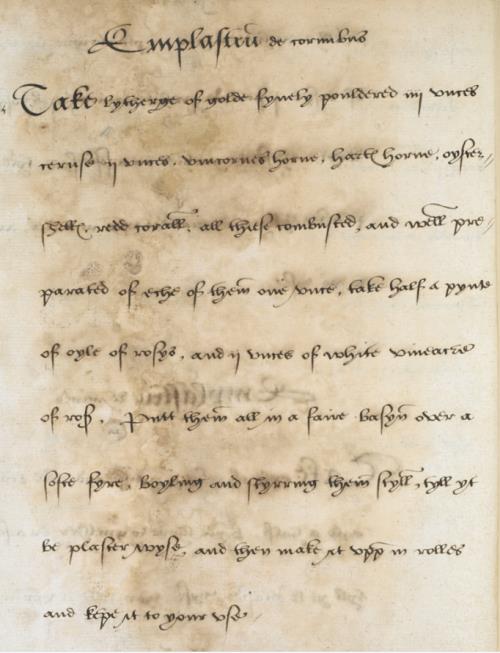 Emplastrū de cornubus
Take lytherge of golde fynely pouldered iiii vnces
ceruse ii vnces, vnicornes horne, hartꝭ horne, oyster-
shellꝭ, redd corall, all thiese combusted, and well pre-
parated of eche of them̄ one vnce, take half a pynte
of oyle of rosys, and ii vnces of white vineacre
of roß. Putt them̄ all in a faire basyn̄ over a
softe fyre, boyling and styrring them̄ styll, tyll yt
be plaster wyse, and then make it vpp in rolles
and kepe it to your vse